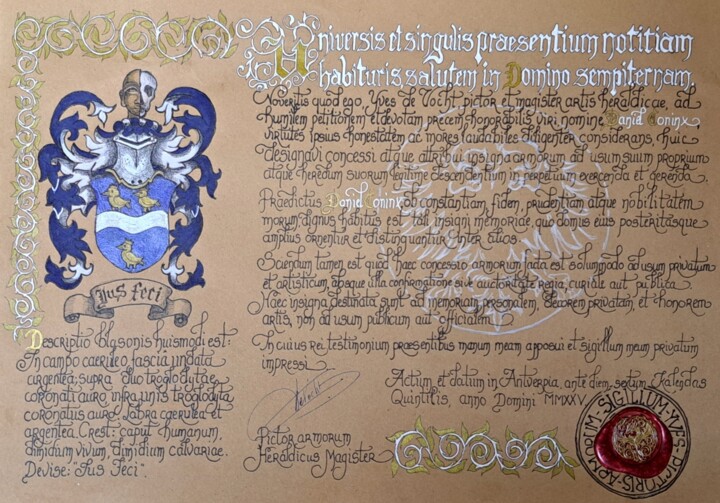 Universis et singulis praesentium notitiam
habituris salutem in Domino sempiternam.
Noveritis quod ego, Yves de Vocht, pictor et magister artis heraldicae, ad
humilem petitionem et devotam precem honorabilis viri nomine Daniel Coninx,
virtutes ipsius honestatem ac mores laudabiles diligenter considerans, huic
designavi concessi atque attribui insigna armorum ad usum suum proprium
atque heredum suorum legitime descendentium in perpetium exercenda et gerenda.
Praedictus Daniel Coninx ob constantiam, fidem, prudentiam atque nobilitatem
morum dignus habitus est tali insigni memoriae, quo domus eius posteritasque
amplius ornentur et distinguantur inter alios.
Sciendum tamen est quod haec concessio armorum facta est solummodo ad usum privatum
et artisticum, absque ulla confirmatione sive auctoritate regia, curiale aut publica.
Haec insigna destinata sunt ad memoriam personalem, decorem privatam, et honorem
artis, non ad usum publicum aut officialem.
In cuius rei testimonium praesentibus manum meam apposui et sigillum meum privatum
impressi.
Actum et datum in Antverpia, ante diem septum Kalendas
Quintilis, anno Domini MMXXV.
Pictor armorum
Heraldicus Magister
Jus feci
Descriptio blasonis huismodi est:
In campo caeruleo fascia undata
argentea, supra duo troglodytae
coronati auro, infra unis troglodyta
coronatus auro. Labra caerulea et
argentea. Crest: caput humanum,
dimidium vivum, dimidium calvariae.
Devise: "Jus Feci".
SIGILLUM YVES PICTORIS ARMORUM